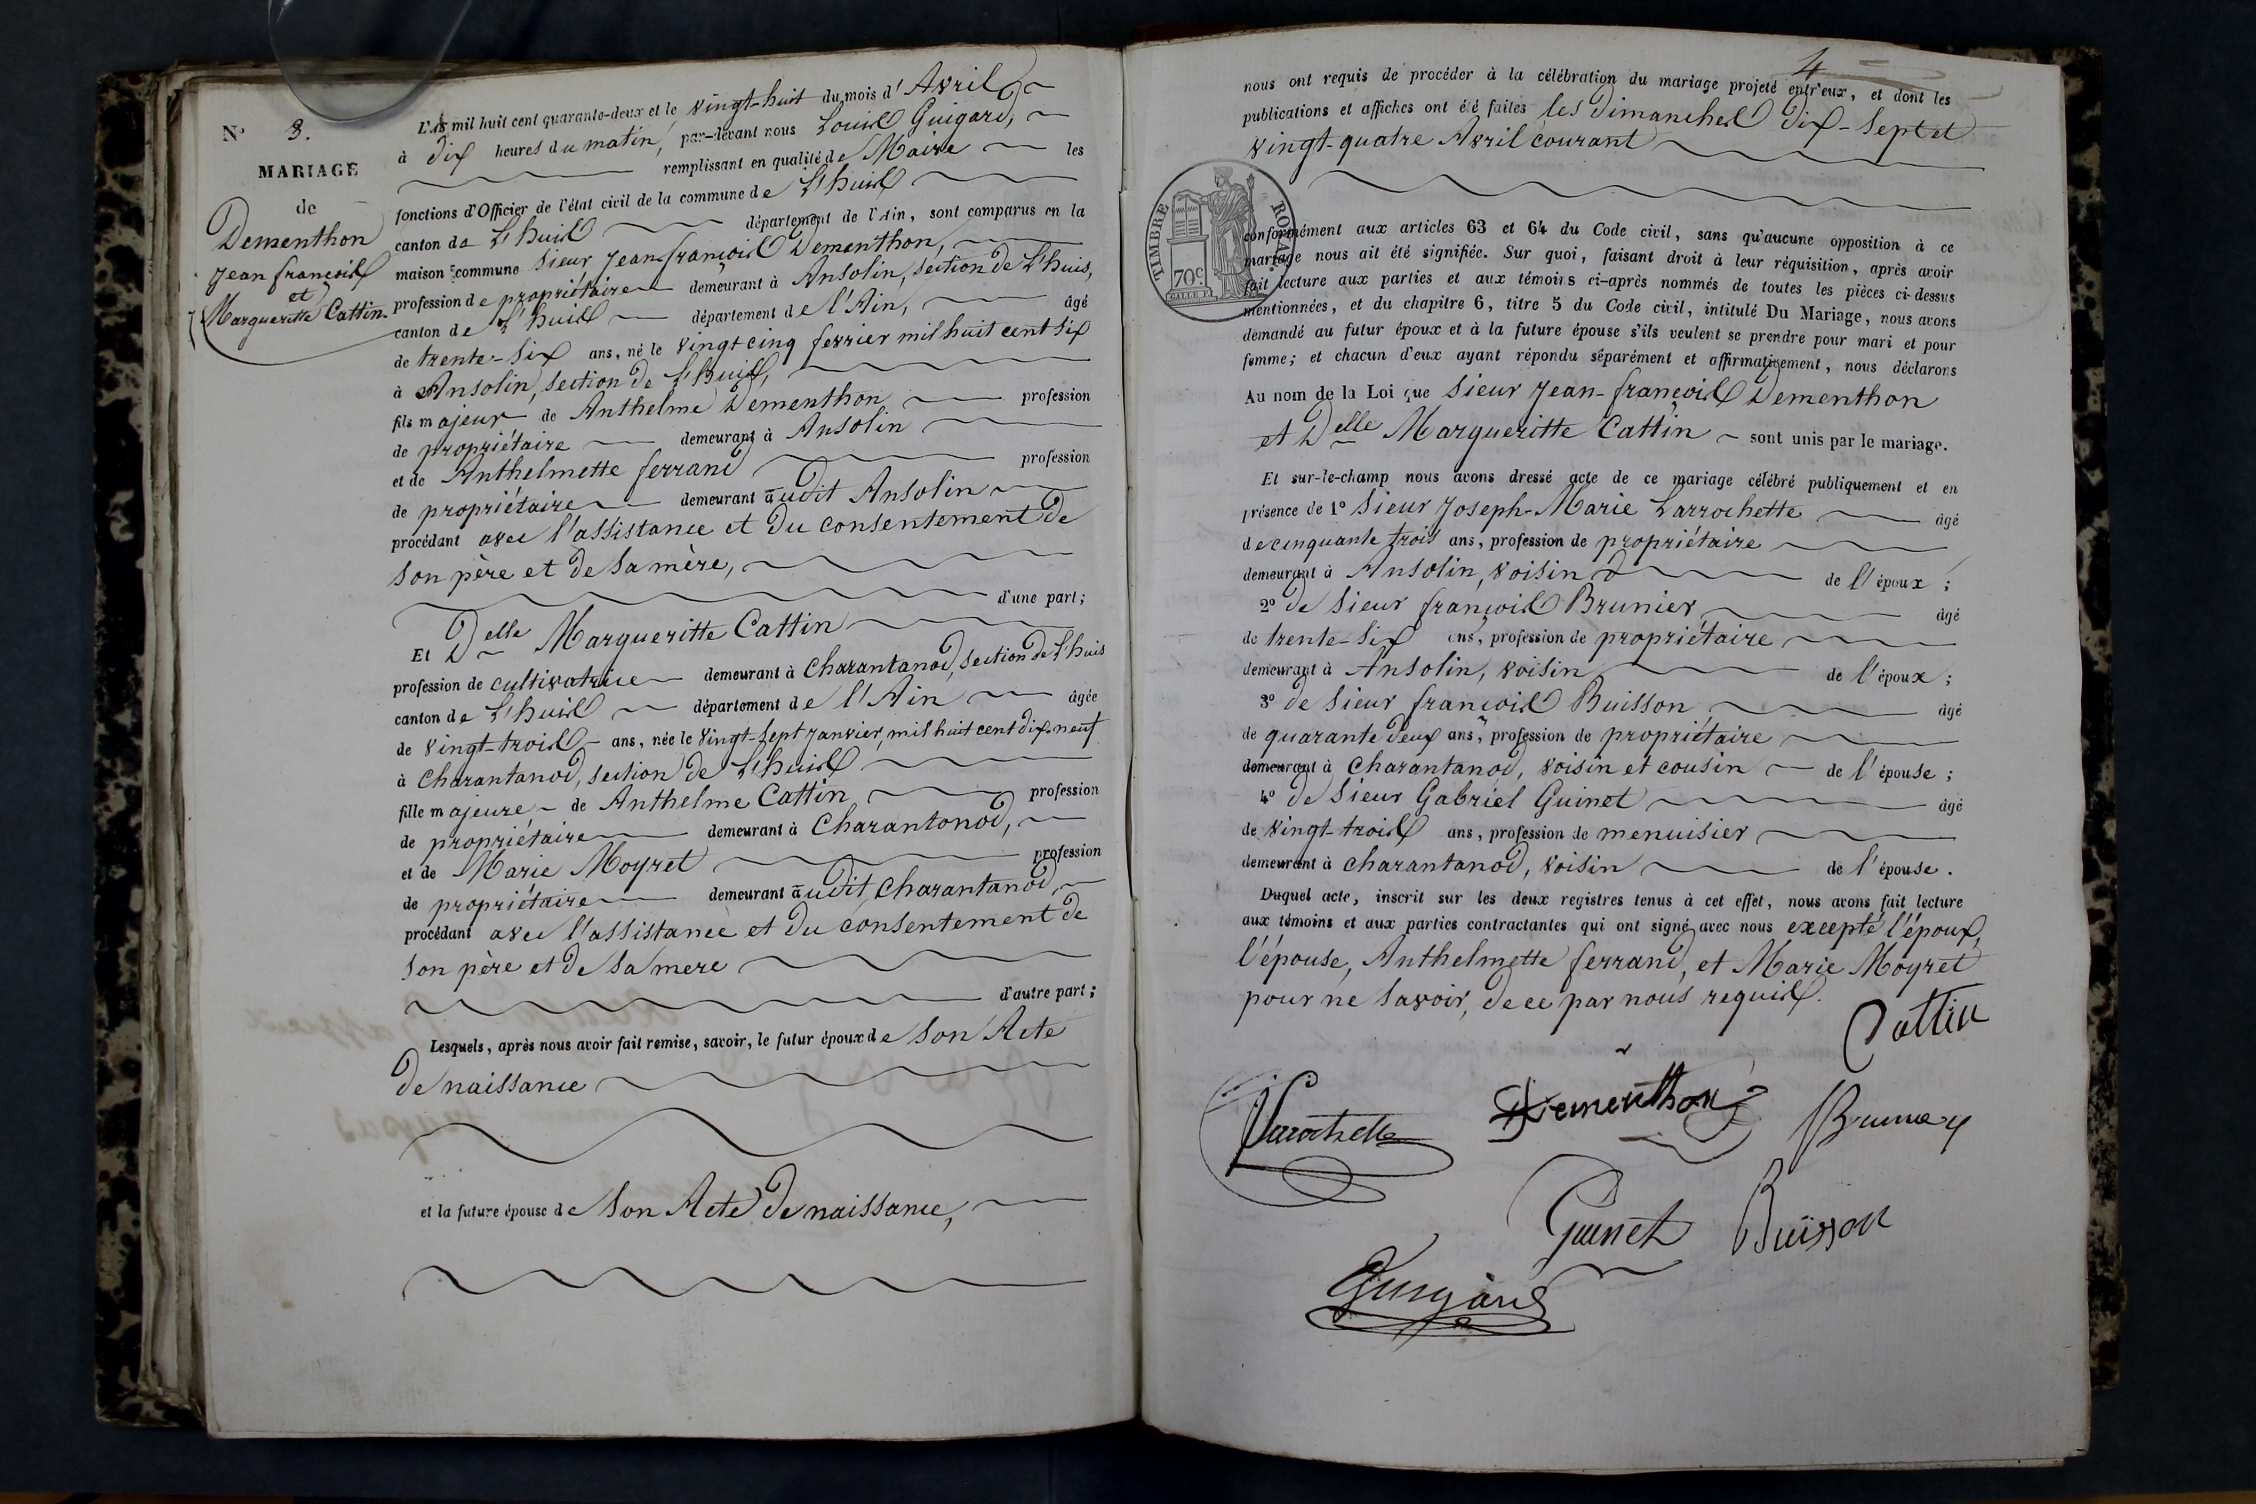 N° 3.
MARIAGE
de
Dementhon
Jean françois
et
Margueritte Cattin.
L'an mil huit cent quarante-deux et le vingt-huit du mois d'Avril
à dix heures du matin, par-devant nous Louis Guigard,
remplissant en qualité de Maire les
fonctions d'Officier de l'état civil de la commune de L'huis
canton de L'huis département de l'Ain, sont comparus en la
maison commune Sieur Jean françois Dementhon,
profession de propriétaire demeurant à Ansolin, section de L'huis,
canton de L'huis département de l'Ain, âgé
de trente-six ans, né le vingt cinq fevrier mil huit cent six
à Ansolin, section de L'huis,
fils majeur de Anthelme Dementhon profession
de propriétaire demeurant à Ansolin
et de Anthelmette ferrand profession
de propriétaire demeurant audit Ansolin
procédant avec l'assistance et du consentement de
son père et de sa mère,
d'une part;
Et Delle Margueritte Cattin
profession de cultivatrice demeurant à Charantanod, section de L'huis
canton de L'huis département de l'Ain âgée
de vingt-trois ans, née le vingt-sept janvier, mil huit cent dix-neuf
à Charantanod, section de L'huis
fille majeure, de Anthelme Cattin profession
de propriétaire demeurant à Charantonod,
et de Marie Moyret profession
de propriétaire demeurant audit Charantanod,
procédant avec l'assistance et du consentement de
son père et de sa mere
d'autre part;
Lesquels, après nous avoir fait remise, savoir, le futur époux de son Acte
de naissance
et la future épouse de son Acte de naissance,
4
nous ont requis de procéder à la célébration du mariage projeté entr'eux, et dont les
publications et affiches ont été faites les dimanches dix-sept et
vingt-quatre Avril courant
TIMBRE ROYAL
70 c.
conformément aux articles 63 et 64 du Code civil, sans qu'aucune opposition à ce
mariage nous ait été signifiée. Sur quoi, faisant droit à leur réquisition, après avoir
fait lecture aux parties et aux témoins ci-après nommés de toutes les pièces ci-dessus
mentionnées, et du chapitre 6, titre 5 du Code civil, intitulé Du Mariage, nous avons
demandé au futur époux et à la future épouse s'ils veulent se prendre pour mari et pour
femme; et chacun d'eux ayant répondu séparément et affirmativement, nous déclarons
Au nom de la Loi que Sieur Jean-françois Dementhon
et Delle Margueritte Cattin sont unis par le mariage.
Et sur-le-champ nous avons dressé acte de ce mariage célébré publiquement et en
présence de 1° Sieur Joseph-Marie Larrochette âgé
de cinquante trois ans, profession de propriétaire
demeurant à Ansolin, voisin de l'époux;
2° de Sieur françois Brunier, âgé
de trente-six ans, profession de propriétaire
demeurant à Ansolin, voisin de l'époux;
3° de Sieur françois Buisson âgé
de quarante deux ans, profession de propriétaire
demeurant à Charantanod, voisin et cousin de l'épouse;
4° de Sieur Gabriel Guinet âgé
de vingt-trois ans, profession de menuisier
demeurant à Charantanod, voisin de l'épouse.
Duquel acte, inscrit sur les deux registres tenus à cet effet, nous avons fait lecture
aux témoins et aux parties contractantes qui ont signé avec nous excepté l'époux,
l'épouse, Anthelmette ferrand, et Marie Moyret
pour ne savoir, de ce par nous requis.
Cattin
Larochette Dementhon Brunier
Guinet Buisson
Guigard